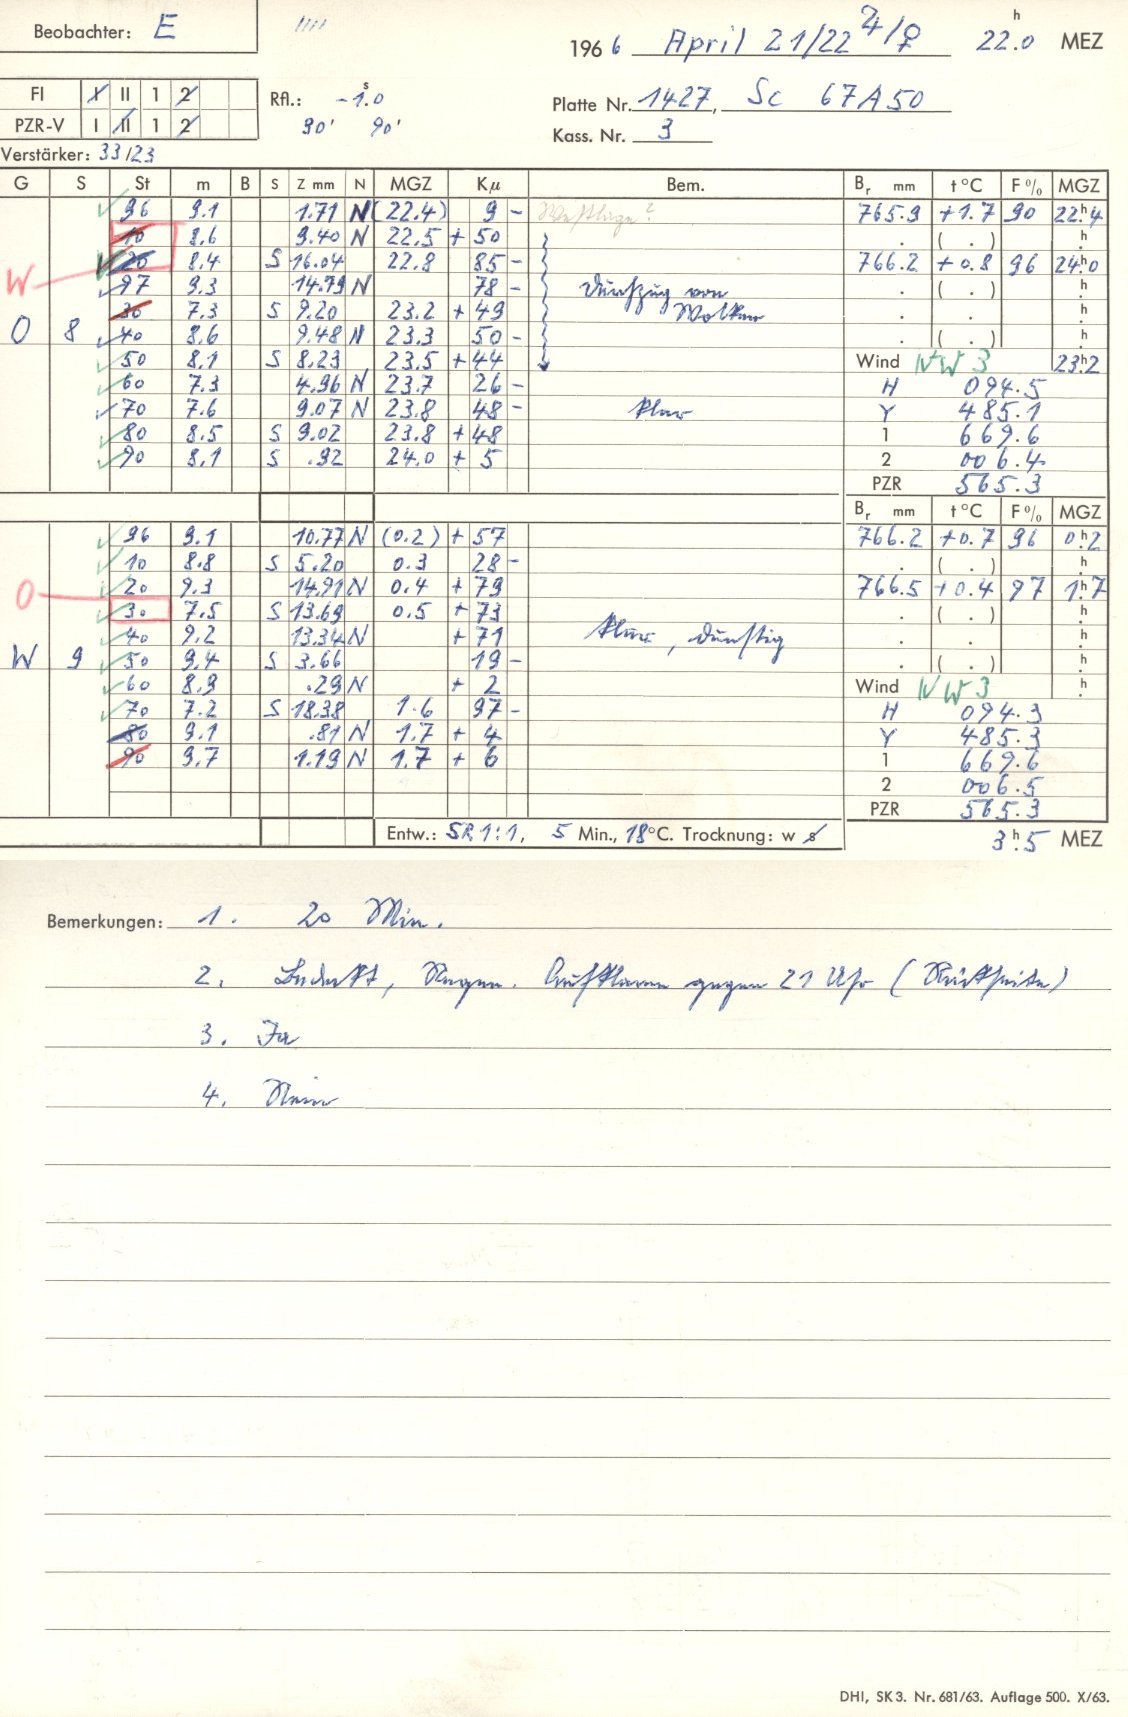 Beobachter: E
1966 April 21/22 ♃/♀ 22.0 h MEZ
FI I II 1 2
PZR-V I II 1 2
Rfl.: -1.0 s
90' 90'
Platte Nr. 1427, Sc 67A50
Kass. Nr. 3
Verstärker: 33/23
G S St m B S Z mm N MGZ Kμ Bem. Br mm t °C F % MGZ
96 9.1 1.71 N (22.4) 9 - Westlage? 765.9 +1.7 90 22h4
10 8.6 9.40 N 22.5 + 50 . ( . ) h
20 8.4 S 16.04 22.8 85 - 766.2 +0.8 96 24h0
W 97 9.3 14.79 N 78 - Durchzug von . ( . ) h
30 7.3 S 9.20 23.2 + 49 Wolken . . h
O 8 40 8.6 9.48 N 23.3 50 - . ( . ) h
50 8.1 S 8.23 23.5 + 44 Wind NW 3 23h2
60 7.3 4.96 N 23.7 26 - H 094.5
70 7.6 9.07 N 23.8 48 - klar Y 485.1
80 8.5 S 9.02 23.8 + 48 1 669.6
90 8.1 S .92 24.0 + 5 2 006.4
PZR 565.3
Br mm t °C F % MGZ
96 9.1 10.77 N (0.2) + 57 766.2 +0.7 96 0h2
10 8.8 S 5.20 0.3 28 - . ( . ) h
O 20 9.3 14.91 N 0.4 + 79 766.5 +0.4 97 1h7
30 7.5 S 13.69 0.5 + 73 . ( . ) h
40 9.2 13.34 N + 71 klar, dunstig . . h
W 9 50 9.4 S 3.66 19 - . ( . ) h
60 8.9 .29 N + 2 Wind NW 3 . h
70 7.2 S 18.38 1.6 97 - H 094.3
80 9.1 .81 N 1.7 + 4 Y 485.3
90 9.7 1.19 N 1.7 + 6 1 669.6
2 006.5
PZR 565.3
Entw.: SR 1:1, 5 Min., 18°C. Trocknung: w s
3h5 MEZ
Bemerkungen: 1. 20 Min.
2. Bedeckt, Regen. Aufklaren gegen 21 Uhr (Rückseite)
3. Ja
4. Nein
DHI, SK 3. Nr. 681/63. Auflage 500. X/63.